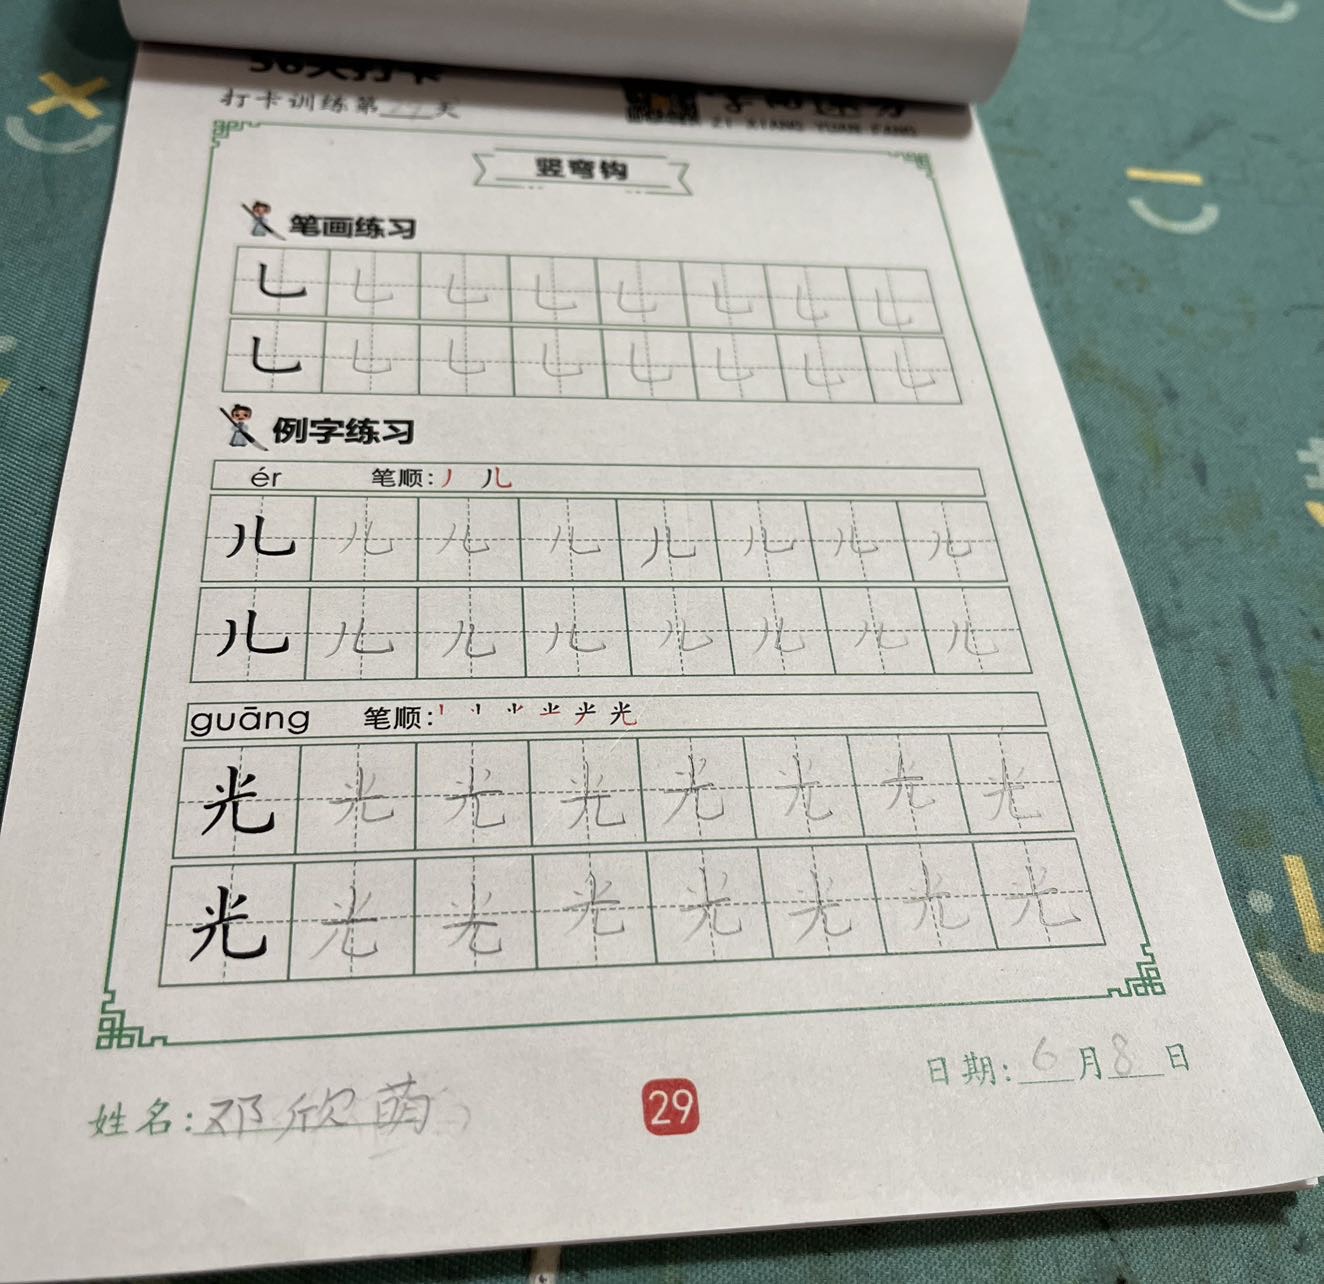 打卡训练第29天
ZI XIANG YUAN FANG
竖弯钩
笔画练习
乚 乚 乚 乚 乚 乚 乚 乚
乚 乚 乚 乚 乚 乚 乚 乚
例字练习
ér 笔顺:丿 儿
儿 儿 儿 儿 儿 儿 儿 儿
儿 儿 儿 儿 儿 儿 儿 儿
guāng 笔顺: 光
光 光 光 光 光 光 光 光
光 光 光 光 光 光 光 光
日期:6月8日
姓名:邓欣萌
29